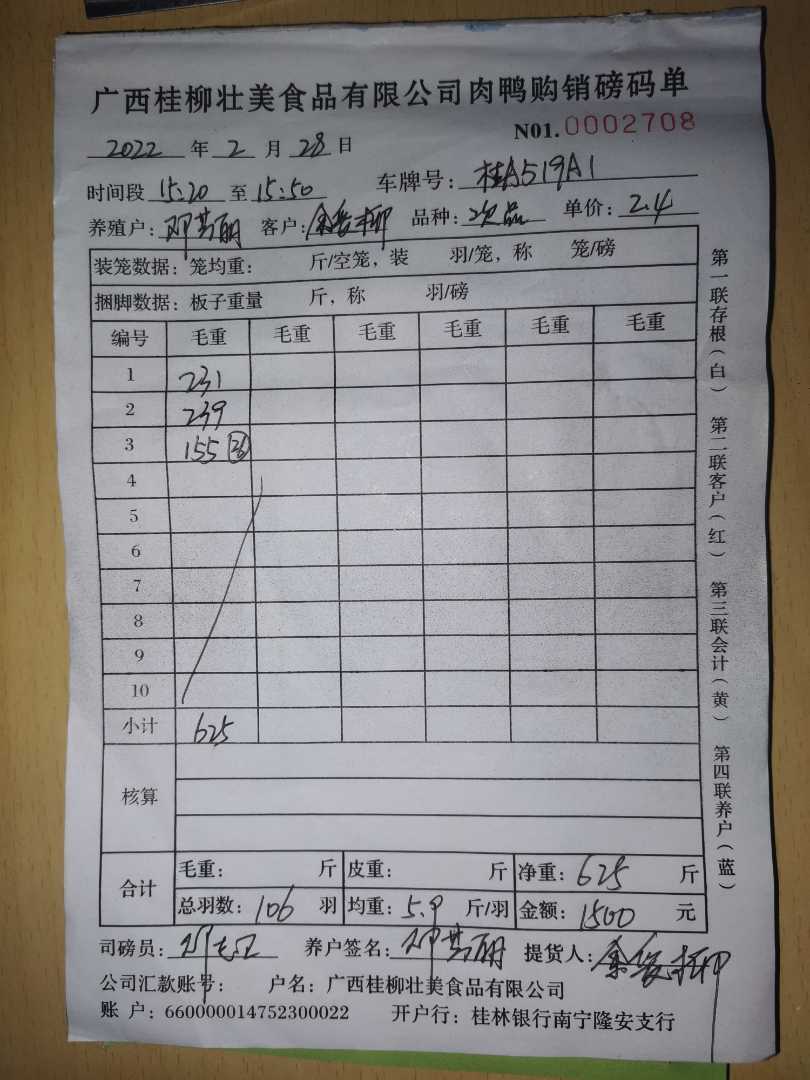 广西桂柳壮美食品有限公司肉鸭购销磅码单
N01.0002708
2022 年 2 月 28 日
时间段 15:20 至 15:50 车牌号: 桂A519A1
养殖户: 邓芸丽 客户: 品种: 次品 单价: 2.4
装笼数据: 笼均重: 斤/空笼, 装 羽/笼, 称 笼/磅
捆脚数据: 板子重量 斤, 称 羽/磅
编号 毛重 毛重 毛重 毛重 毛重 毛重
1 231
2 239
3 155
4
5
6
7
8
9
10
小计 625
核算
合计 毛重: 斤 皮重: 斤 净重: 625 斤
总羽数: 106 羽 均重: 5.9 斤/羽 金额: 1500 元
司磅员: 养户签名: 邓芸丽 提货人:
公司汇款账号: 户名: 广西桂柳壮美食品有限公司
账 户: 660000014752300022 开户行: 桂林银行南宁隆安支行
第一联存根(白) 第二联客户(红) 第三联会计(黄) 第四联养户(蓝)